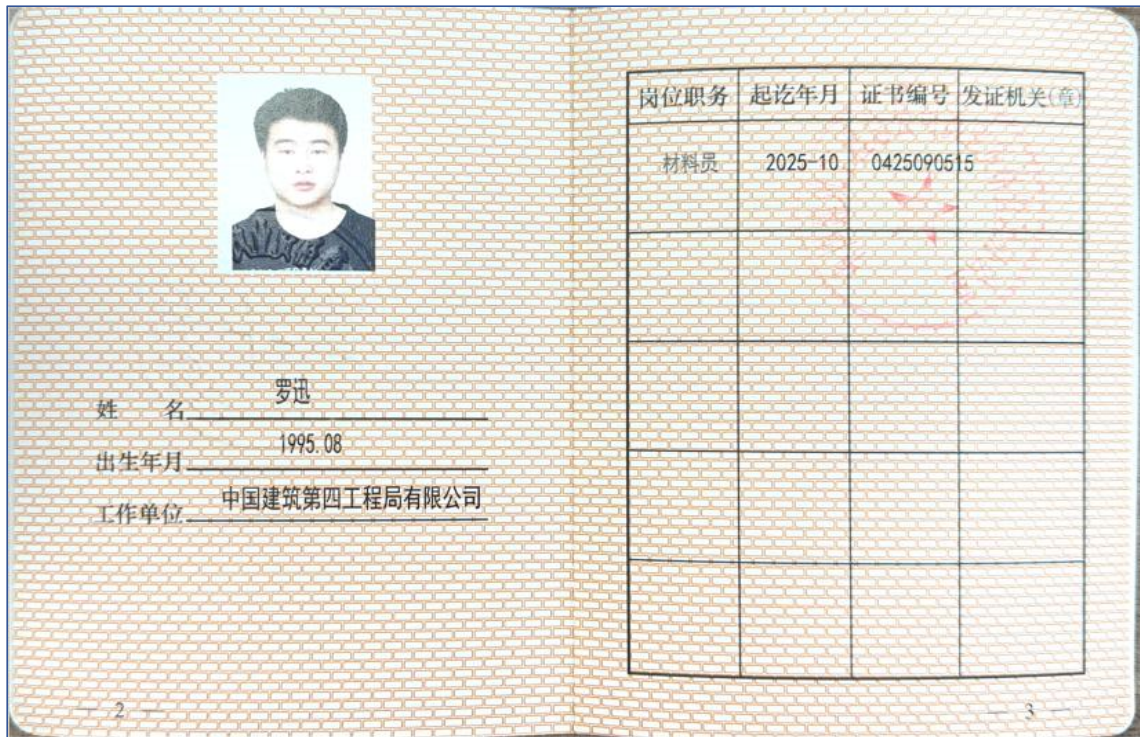 姓 名 罗迅
出生年月 1995.08
工作单位 中国建筑第四工程局有限公司
2
岗位职务 起讫年月 证书编号 发证机关(章)
材料员 2025-10 0425090515
3